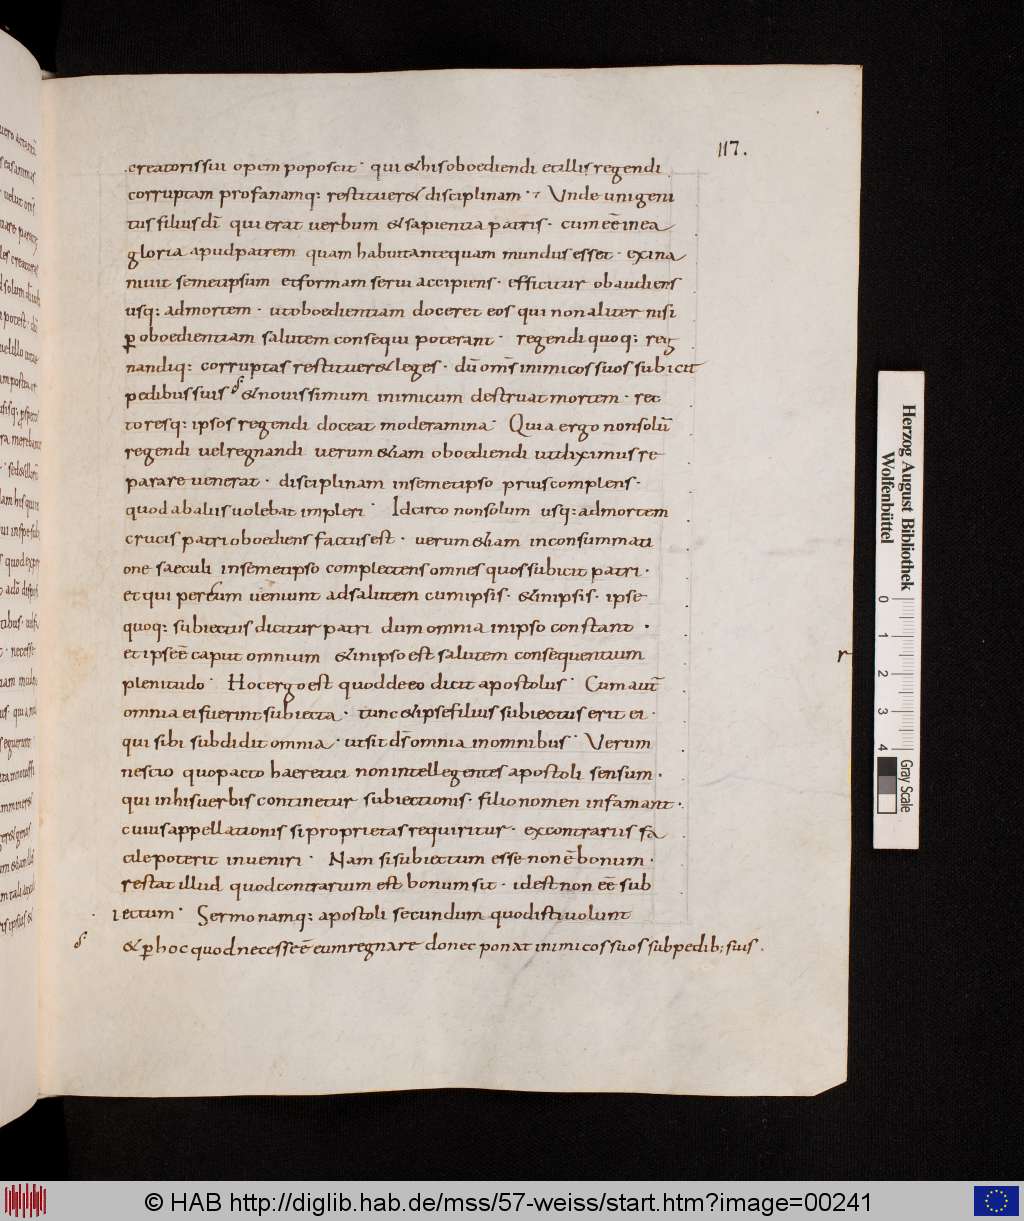 117.
creatoris sui opem poposcit · qui & his oboediendi et illis regendi
corruptam profanamq: restituer& disciplinam · Unde unigeni
tus filius dī qui erat uerbum & sapientia patris · cum eēt in ea
gloria apud patrem quam habuit antequam mundus esset · exina
niuit semetipsum et formam serui accipiens · efficitur obaudiens
usq: ad mortem · ut oboedientiam doceret eos qui non aliter nisi
ꝑ oboedientiam salutem consequi poterant · regendi quoq: reg
nandiq: corruptas restituer& leges · dū om̄s inimicos suos subicit
pedibus suis & nouissimum inimicum destruat mortem · rec
toresq: ipsos regendi doceat moderamina · Quia ergo non solū
regendi uel regnandi uerum &iam oboediendi uti diximus re
parare uenerat · disciplinam in semetipso prius complens ·
quod ab aliis uolebat impleri · Idcirco non solum usq: ad mortem
crucis patri oboediens factus est · uerum &iam in consummati
one saeculi in semetipso complectens omnes quos subicit patri ·
et qui per eum ueniunt ad salutem cum ipsis · & in ipsis · ipse
quoq: subiectus dicitur patri dum omnia in ipso constant ·
et ipse ē caput omnium & in ipso est salutem consequentium
plenitudo · Hoc ergo est quod de eo dicit apostolus · Cum aut̄
omnia ei fuerint subiecta · tunc & ipse filius subiectus erit ei ·
qui sibi subdidit omnia · ut sit ds̄ omnia in omnibus · Verum
nescio quo pacto haeretici non intellegentes apostoli sensum ·
qui in his uerbis continetur subiectionis · filio nomen infamant ·
cuius appellationis si proprietas requiritur · ex contrariis fa
cile poterit inueniri · Nam si subiectum esse non ē bonum ·
restat illud quod contrarium est bonum sit · id est non eē sub
iectum · Sermo namq: apostoli secundum quod isti uolunt
& ꝑ hoc quod necesse ē eum regnare donec ponat inimicos suos sub pedib; suis .
r
Herzog August Bibliothek
Wolfenbüttel
0 1 2 3 4
Gray Scale
© HAB http://diglib.hab.de/mss/57-weiss/start.htm?image=00241